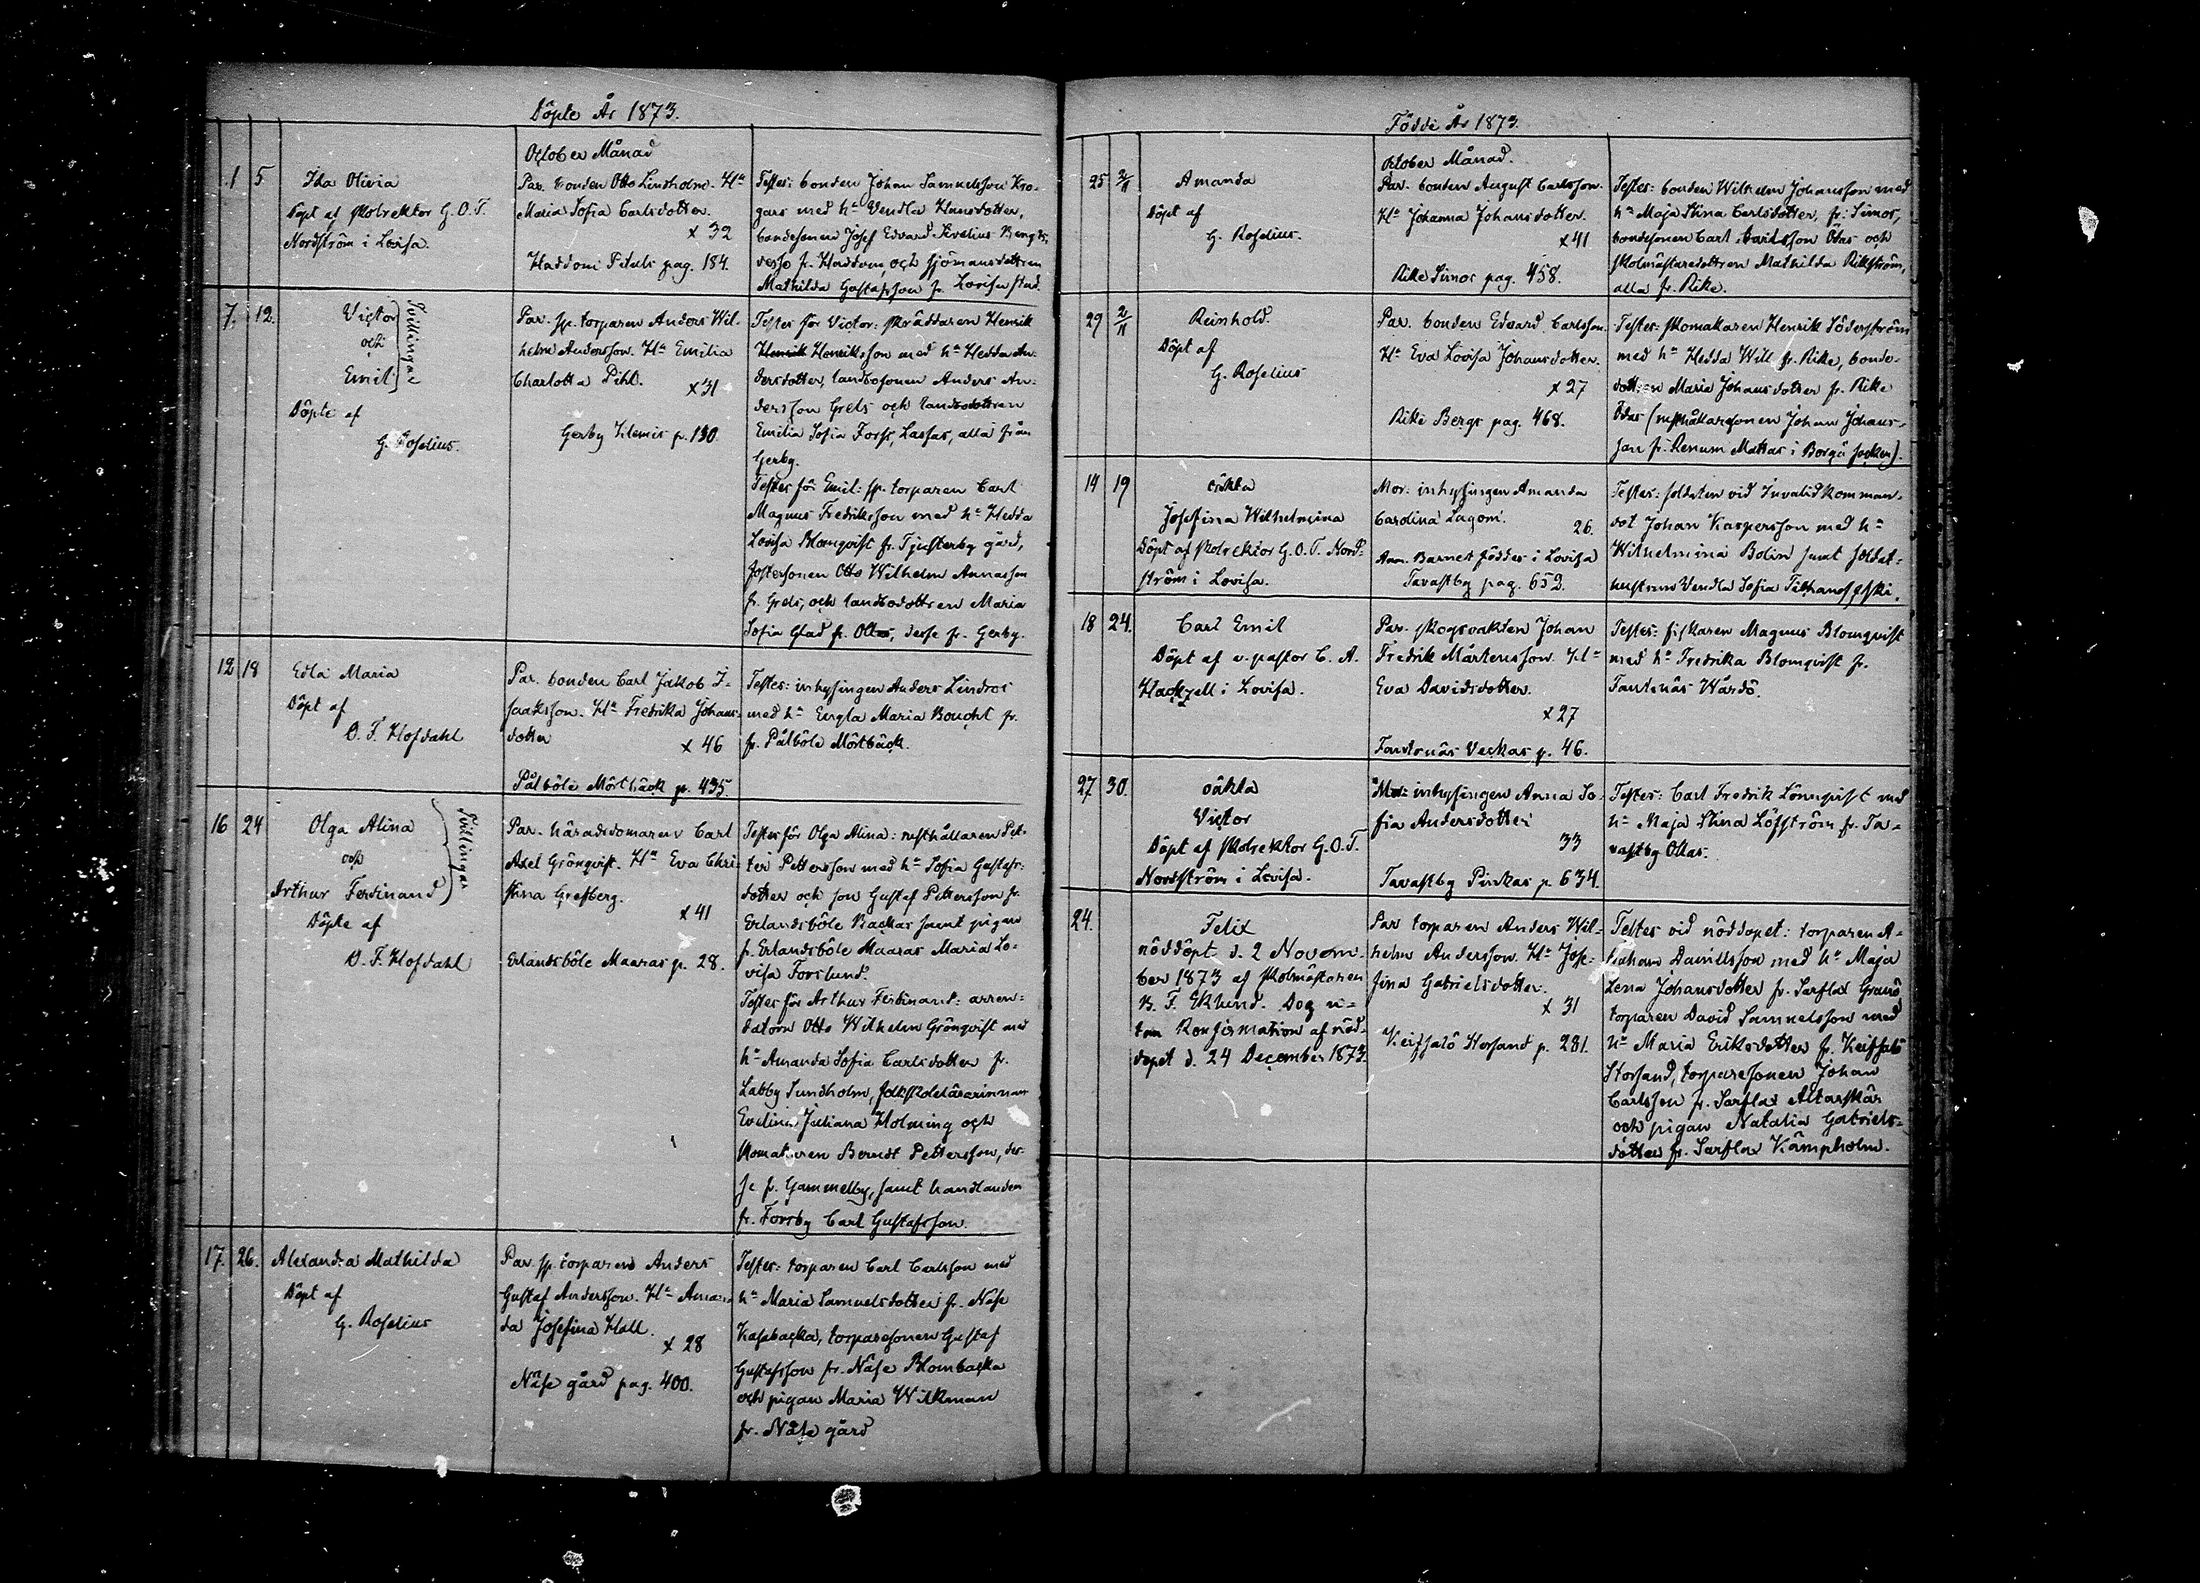 Döpte År 1873.
October Månad
1 5
Ida Olivia
Döpt af skolrektor G. O. T.
Nordström i Lovisa.
Par. bonden Otto Lindholm. Hu
Maria Sofia Carlsdotter.
x 32
Haddom Petuls pag. 184.
Testes: bonden Johan Samuelsson Kro-
gars med hu Vendla Hansdotter,
bondesonen Josef Edvard Sivelius
desse fr. Haddom, och sjömansdottren
Mathilda Gustafsson fr. Lovisa stad.
7. 12.
Victor
och
Emil
Tvillingar
Döpte af
G. Roselius.
Par. sp. torparen Anders Wil-
helm Andersson. Hu Emilia
Charlotta Pihl.
x 31
Gerby Klemis p. 130
Testes för Victor: skräddaren Henrik
Henrik Henriksson med hu Hedda An-
dersdotter, landbosonen Anders An-
dersson Grels och landbodottren
Emilia Sofia Forss, Lassas, alla från
Gerby.
Testes för Emil: sp. torparen Carl
Magnus Fredriksson med hu Hedda
Lovisa Blomqvist fr. Tjusterby gård,
fostersonen Otto Wilhelm Annasson
fr. Grels, och landbodottren Maria
Sofia Glad fr. Ollas, desse fr. Gerby.
12 18
Edla Maria
Döpt af
O. F. Hofdahl
Par. bonden Carl Jakob I-
saaksson. Hu Fredrika Johans-
dotter
x 46
Påtböle Mörtbäck p. 435
Testes: inhysingen Anders Lindros
med hu Engla Maria Boucht fr.
fr. Påtböle Mörtbäck.
16 24
Olga Alina
och
Arthur Ferdinand
Tvillingar
Döpte af
O. F. Hofdahl
Par. häradsdomaren Carl
Axel Grönqvist. Hu Eva Chri-
stina Grefberg.
x 41
Erlandsböle Maaras p. 28.
Testes för Olga Alina: rusthållaren Pet-
ter Pettersson med hu Sofia Gustafs-
dotter och son Gustaf Pettersson fr.
Erlandsböle Backas samt pigan
fr. Erlandsböle Maaras Maria Lo-
visa Forslund.
Testes för Arthur Ferdinand: arren-
datorn Otto Wilhelm Grönqvist med
hu Amanda Sofia Carlsdotter fr.
Labby Sundholm, folkskolelärarinnan
Evelina Juliana Holming och
skomakaren Berndt Pettersson, des-
se fr. Gammelby, samt handlanden
fr. Forsby Carl Gustafsson.
17. 26.
Alexandra Mathilda
Döpt af
G. Roselius
Par. sp. torparen Anders
Gustaf Andersson. Hu Aman-
da Josefina Hall.
x 28
Näse gård pag. 400.
Testes: torparen Carl Carlsson med
hu Maria Samuelsdotter fr. Näse
Kasabacka, torparesonen Gustaf
Gustafsson fr. Näse Blombacka
och pigan Maria Wikman
fr. Näse gård
Födde År 1873.
October Månad.
25 2/11
Amanda
Döpt af
G. Roselius.
Par. bonden August Carlsson.
Hu Johanna Johansdotter.
x 41
Rike Simos pag. 458.
Testes: bonden Wilhelm Johansson med
hu Maja Stina Carlsdotter, fr. Simos,
bondesonen Carl Carlsson Ödas och
skolmästaredottren Mathilda Rikström,
alla fr. Rike.
29 2/11
Reinhold.
Döpt af
G. Roselius
Par. bonden Edvard Carlsson.
Hu Eva Lovisa Johansdotter.
x 27
Rike Bergs pag. 468.
Testes: skomakaren Henrik Söderström
med hu Hedda Will fr. Rike, bonde-
dottren Maria Johansdotter fr. Rike
Ödas (rusthållaresonen Johan Johans-
son fr. Renum Mattas i Borgå socken).
14 19
oäkta
Josefina Wilhelmina
Döpt af skolrektor G. O. T. Nord-
ström i Lovisa.
Mor: inhysingen Amanda
Carolina Lagom.
26
Anm. Barnet föddes i Lovisa
Tavastby pag. 652.
Testes: soldaten vid Invalidkomman-
dot Johan Kaspersson med hu
Wilhelmina Bolin samt soldat-
hustrun Vendla Sofia
18 24.
Carl Emil
Döpt af v. pastor C. A.
Hackzell i Lovisa.
Par. skogvakten Johan
Fredrik Mårtensson. Hu
Eva Davidsdotter.
x 27
Tantenäs Veckas p. 46.
Testes: fiskaren Magnus Blomqvist
med hu Fredrika Blomqvist fr.
Tantenäs Wårdö.
27 30.
oäkta
Victor
Döpt af skolrektor G. O. T.
Nordström i Lovisa.
Mor: inhysingen Anna So-
fia Andersdotter
33
Tavastby Pirkas p. 634.
Testes: Carl Fredrik Lönnqvist med
hu Maja Stina Löfström fr. Ta-
vastby Ollas.
24.
Felix
nöddöpt d. 2 Novem-
ber 1873 af skolmästaren
B. F. Eklund. Dog u-
tan Konfirmation af nöd-
dopet d. 24 December 1873.
Par. torparen Anders Wil-
helm Andersson. Hu Jose-
fina Gabrielsdotter.
x 31
Keitsalö Storsand p. 281.
Testes vid nöddopet: torparen A-
braham Danielsson med hu Maja
Lena Johansdotter fr. Sarflax Grand
torparen David Samuelsson med
hu Maria Eriksdotter fr. Keitsalö
Storsand, torparesonen Johan
Carlsson fr. Sarflax Altarskär
och pigan Natalia Gabriels-
dotter fr. Sarflax Kämpholm.